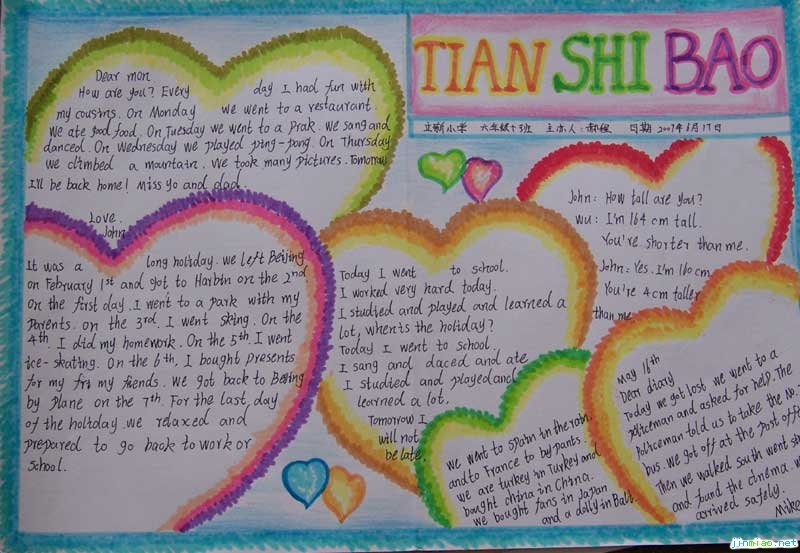 TIAN SHI BAO
立新小学 六年级十3班 主办人: 日期 2009年6月17日
Dear mon
How are you? Every day I had fun with
my cousins. On Monday we went to a restaurant.
We ate good food. On Tuesday we went to a prak. We sang and
danced. On Wednesday we played ping-pong. On Thursday
we climbed a mountain. We took many pictures. Tomorrow
I'll be back home! Miss yo and dad.
Love.
John
It was a long holiday. We left Beijing
on February 1st and got to Harbin on the 2nd
On the first day. I went to a park with my
parents. on the 3rd. I went sking. On the
4th I did my homework. On the 5th. I went
ice-skating. On the 6th. I bought presents
for my fri my fiends. We got back to Beijing
by plane on the 7th. For the last, day
of the holiday. we relaxed and
prepared to go back to work or
school.
Today I went to school.
I worked very hard today.
I studied and played and learned a
lot, when is the holiday?
Today I went to school.
I sang and daced and ate
I studied and played and
learned a lot.
Tomorrow I
will not
be late.
John: How tall are you?
Wu: I'm 164 cm tall.
You're shorter than me.
John: Yes. I'm 160 cm
You're 4 cm taller
than me
We went to Spain in the rain.
and to France to buy pants.
We are turkey in Turkey and
bought china in China.
We bought fans in Japan
and a dolly in Bali.
May 16th
Dear diary
Today we got lost. we went to a
policeman and asked for help. The
policeman told us to take the No.
bus. We got off at the post offi
Then we walked south went st
and found the cinema. w
arrived safely.
Mike
jinmiao.net